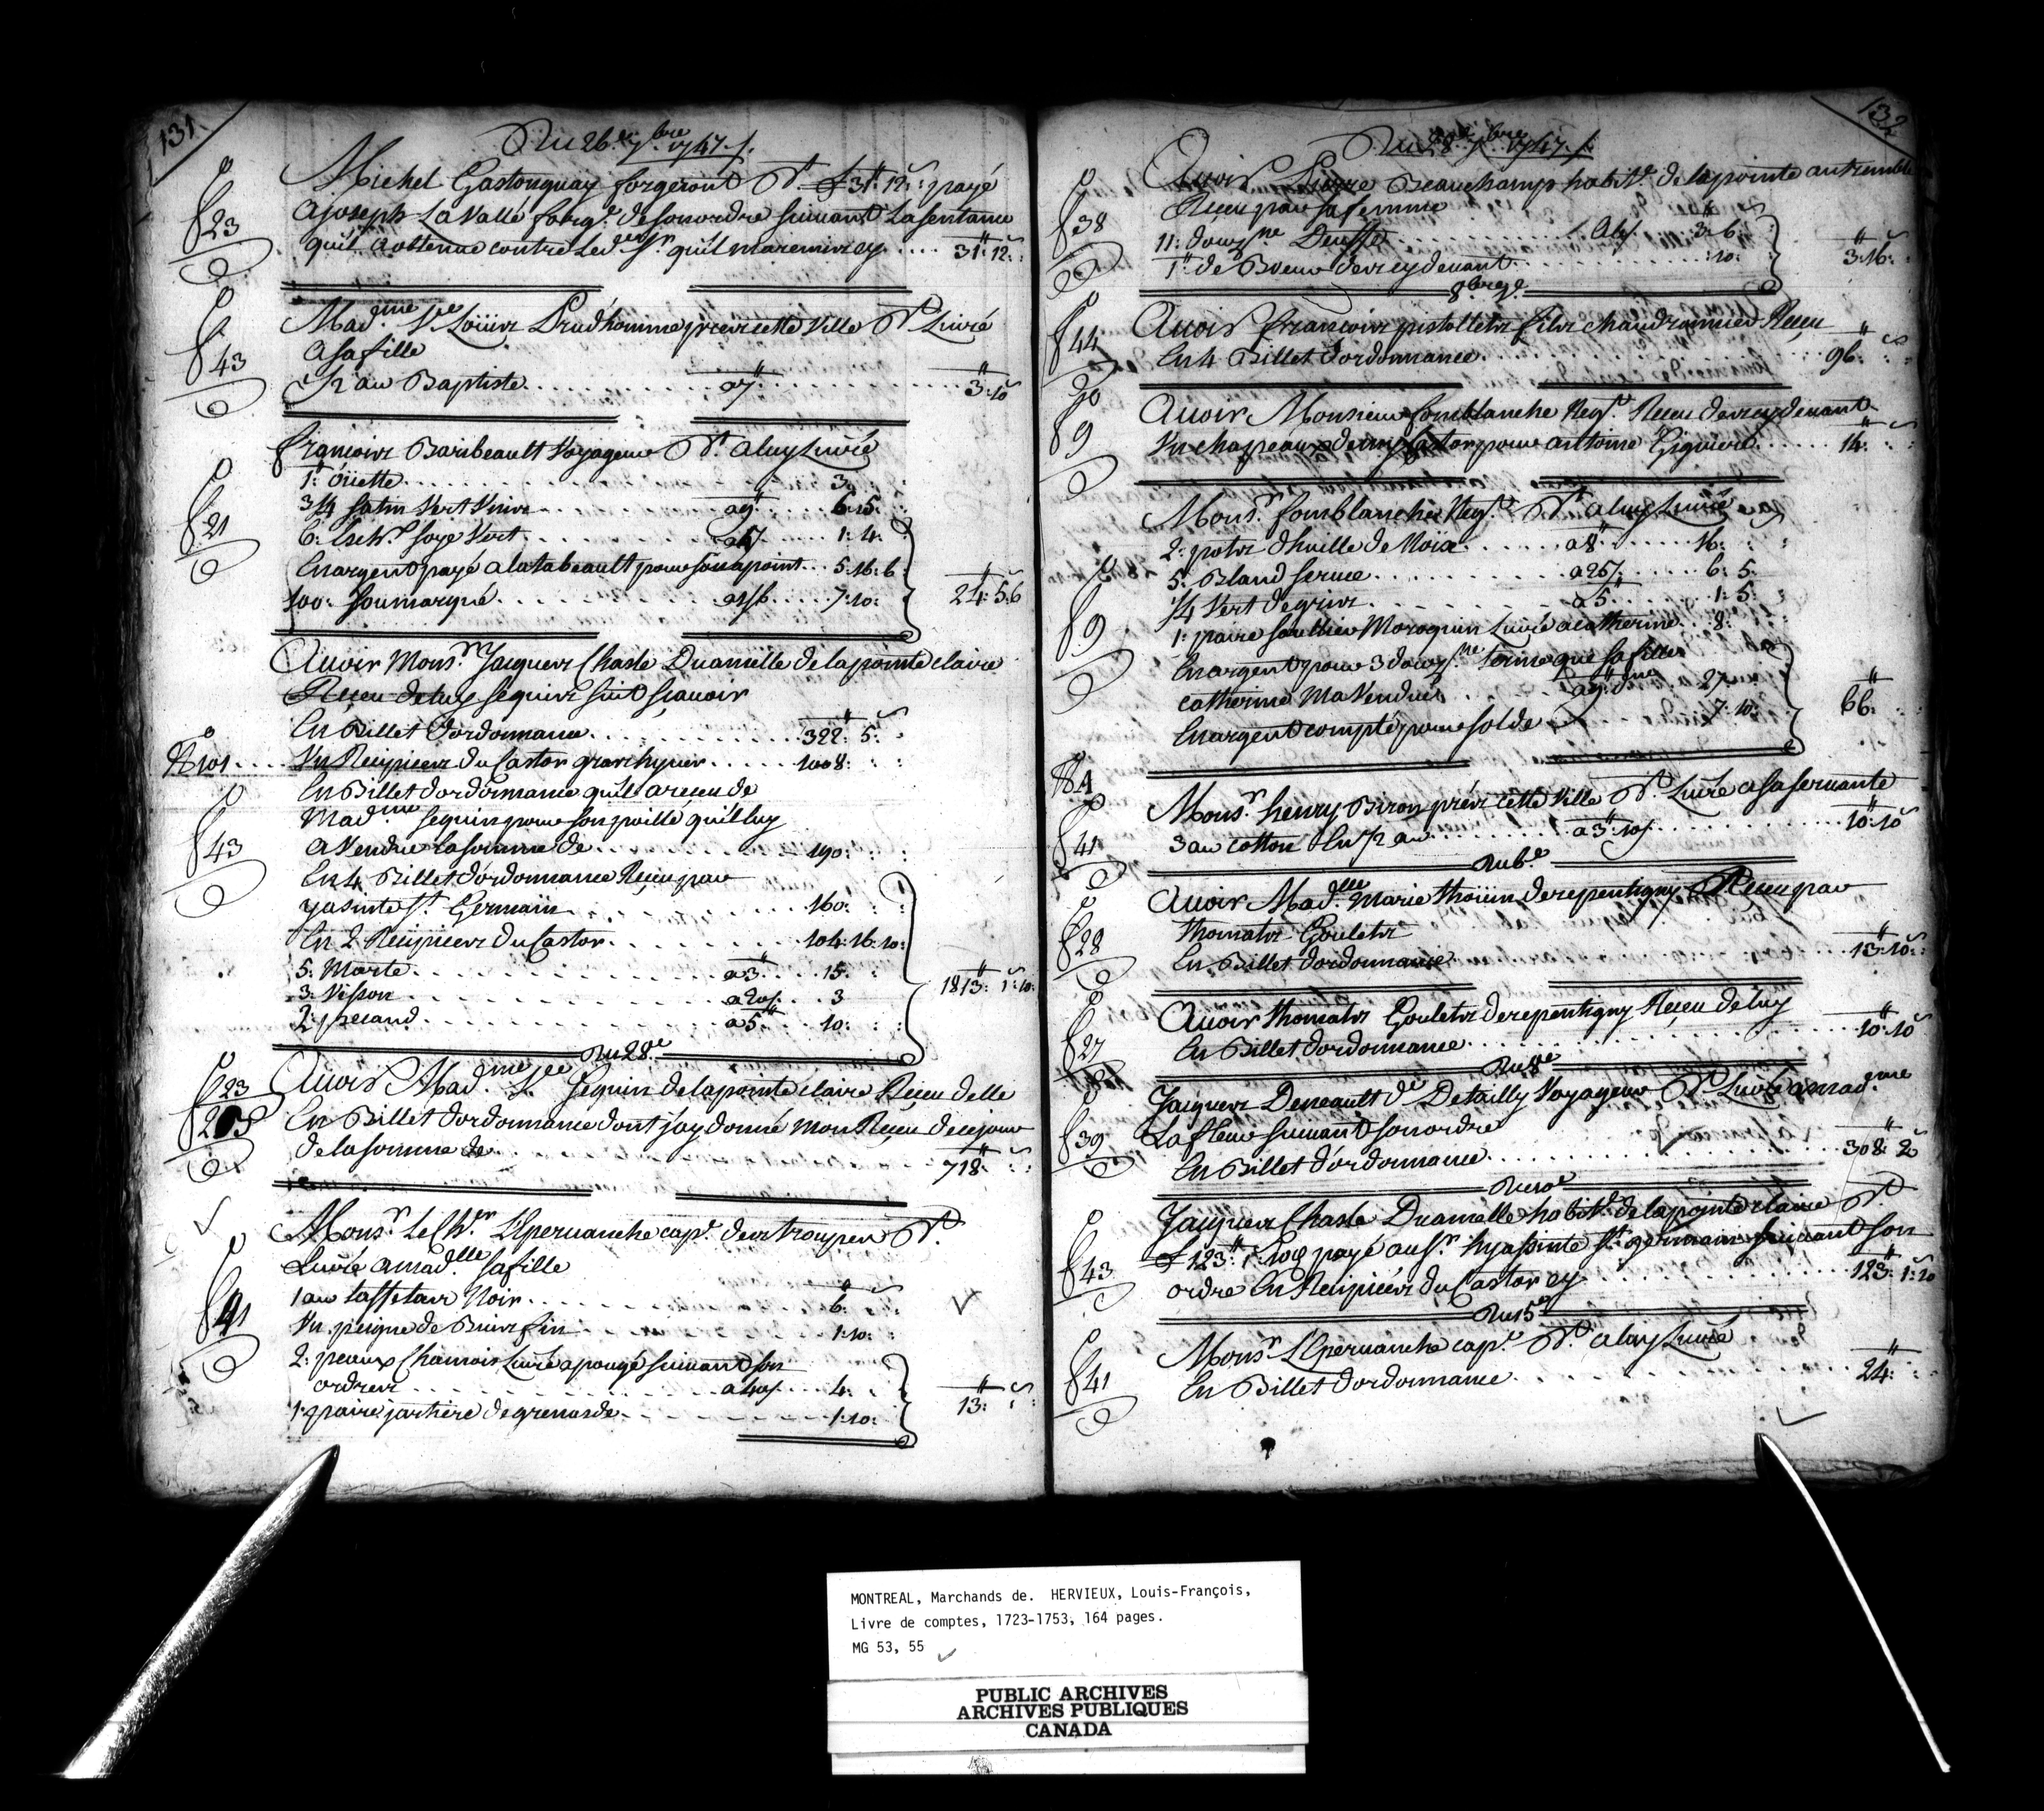 131
Du 26e 7bre 1747
Michel Gastonguay forgeront Dt £ 31: 12: payé
fo 23
a joseph La Vallé forgr de son ordre suivant La sentance
quil a obtenue contre Led. Sr quil ma remis cy .... 31: 12:
fo 43
Madme Vee Loüis Prudhomme pres cette Ville Dt Livré
a sa fille
1/2 au Baptiste a 7 3: 10
fo 21
francois Baribeault Voyageur Dt a luy Livré
1: öüette 3
3/4 satin Vert a 9 6: 15:
6: soye Vert 1: 4:
En argent payé a pour 5: 16: 6
100: soumarqué a 1/6 7: 10: 24: 5: 6
Avoir Monsr Jacques Chasle Duamelle de la pointe claire
Receu de luy sequi suit scavoir
En Billet dordonnance 322: 5:
No 101 Un Recipicez du Castor 1008:
En Billet dordonnance quil a receu de
Madme sequin pour quil luy
fo 43
a Vendue la somme de 190:
En 4 Billet dordonnance Receu par
yasinte St Germain 160:
En 2 Recipicez du Castor 104: 16: 10:
5: Marte a 3 15:
3: Visson a 20s 3
2: pecand a 5 10: 1813: 1: 10:
Du 28e
fo 23
Avoir Madme Vee sequin de la pointe claire Receu delle
En Billet dordonnance dont jay donné mon Receu de ce jour
de la somme de 718:
fo 41
Monsr Le Chr Lepervanche capt des trouppes Dt
Livré a madlle sa fille
1 au taffetas Noir 6:
Un peigne de Buis fin 1: 10:
2: peaux Chamois Livré a pougé suivant son
ordres a 40s 4:
1: paire jartiere de grenade 1: 10: 13:
132
Du 28e 7bre 1747
fo 38
Avoir Pierre Beauchamp habitt de la pointe au tremble
Receu par sa femme
11: douzne Deuffe a 6s 3: 6:
1: de Boeur 10: 3: 16:
8bre 2e
fo 44
Avoir francois pistollets fils chaudronnier Receu
En 4 Billet dordonnance 96:
fo 9
Avoir Monsieur fonblanche Negt Receu
Un chappeaux demy Castor pour antoine Giguiere 14:
fo 9
Monsr fonblanche Negt Dt a luy Livré
2: pots dhuille de Noix a 8 16:
5: Bland seruce a 25s 6: 5
1/4 Vert de gris a 5 1: 5:
1: paire soullier Moroquin Livré a catherine 8:
En argent pour 3 douzne que sa fille
catherine ma Vendue a 9 27:
En argent compté pour solde 7: 10: 66:
fo 41
Monsr henry Biron pres cette Ville Dt Livré a sa servante
3 au cotton En 1/2 au a 3: 10s 10: 10
Du 6e
fo 28
Avoir Madlle Marie thoüin de repentigny Receu par
thomats Goulets
En Billet dordonnance 13: 10:
fo 27
Avoir thomats Goulets de repentigny Receu de luy
En Billet dordonnance 10: 10
Du 8e
fo 39
Jacques Deneault de Detailly Voyageur Dt Livré a madme
Lafleur suivant son ordre
En Billet dordonnance 308: 2
Du 10e
fo 43
Jacques Chasle Duamelle habitt de la pointe claire Dt
£ 123: 1: 10d payé au Sr hyassinte St germain suivant son
ordre En Recipicez du Castor cy 123: 1: 10
Du 15e
fo 41
Monsr Lepervanche capt Dt a luy Livré
En Billet dordonnance 24:
MONTREAL, Marchands de. HERVIEUX, Louis-François,
Livre de comptes, 1723-1753, 164 pages.
MG 53, 55
PUBLIC ARCHIVES
ARCHIVES PUBLIQUES
CANADA